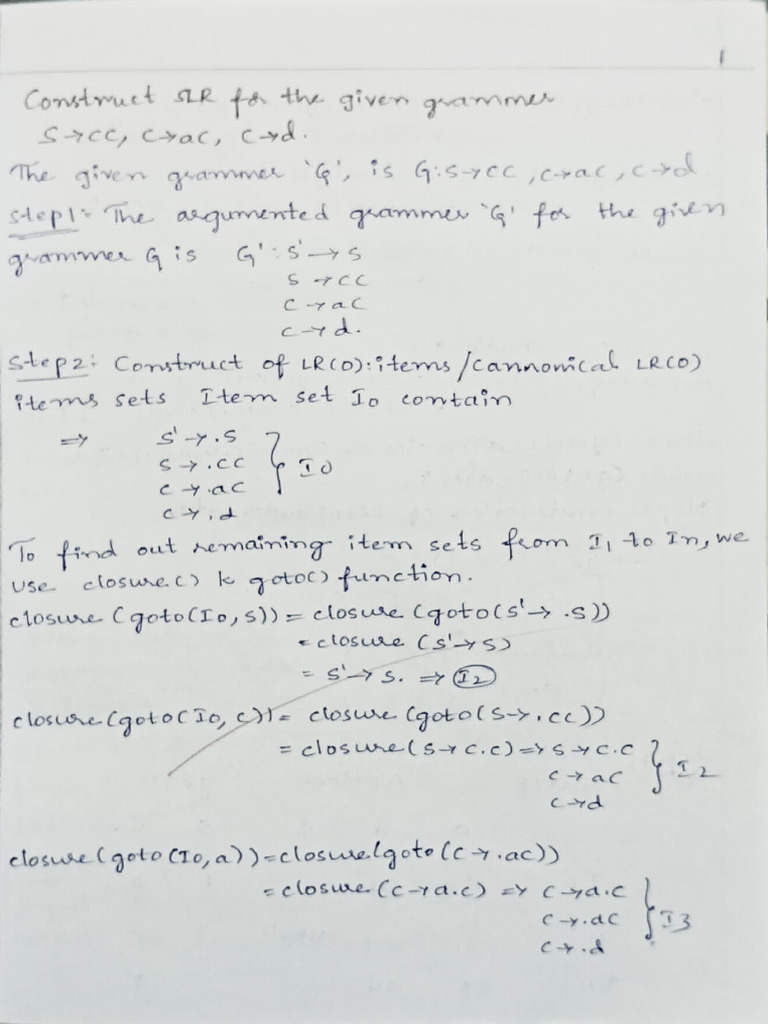 1
Construct SLR for the given grammer
S→CC, C→aC, C→d.
The given grammer 'G', is G:S→CC, C→aC, C→d
Step1:- The argumented grammer 'G' for the given
grammer G is G': S'→S
S→CC
C→aC
C→d.
Step2: Construct of LR(0):items/cannonical LR(0)
items sets Item set I0 contain
⇒ S'→.S
S→.CC } I0
C→.aC
C→.d
To find out remaining item sets from I1 to In, we
use closure() & goto() function.
closure (goto(I0,S)) = closure (goto(S'→.S))
= closure (S'→S)
= S'→S. ⇒ I2
closure (goto(I0,C)) = closure (goto(S→.CC))
= closure (S→C.C) ⇒ S→C.C
C→aC } I2
C→d
closure (goto(I0,a)) = closure(goto(C→.aC))
= closure (C→a.C) ⇒ C→a.C
C→.aC } I3
C→.d